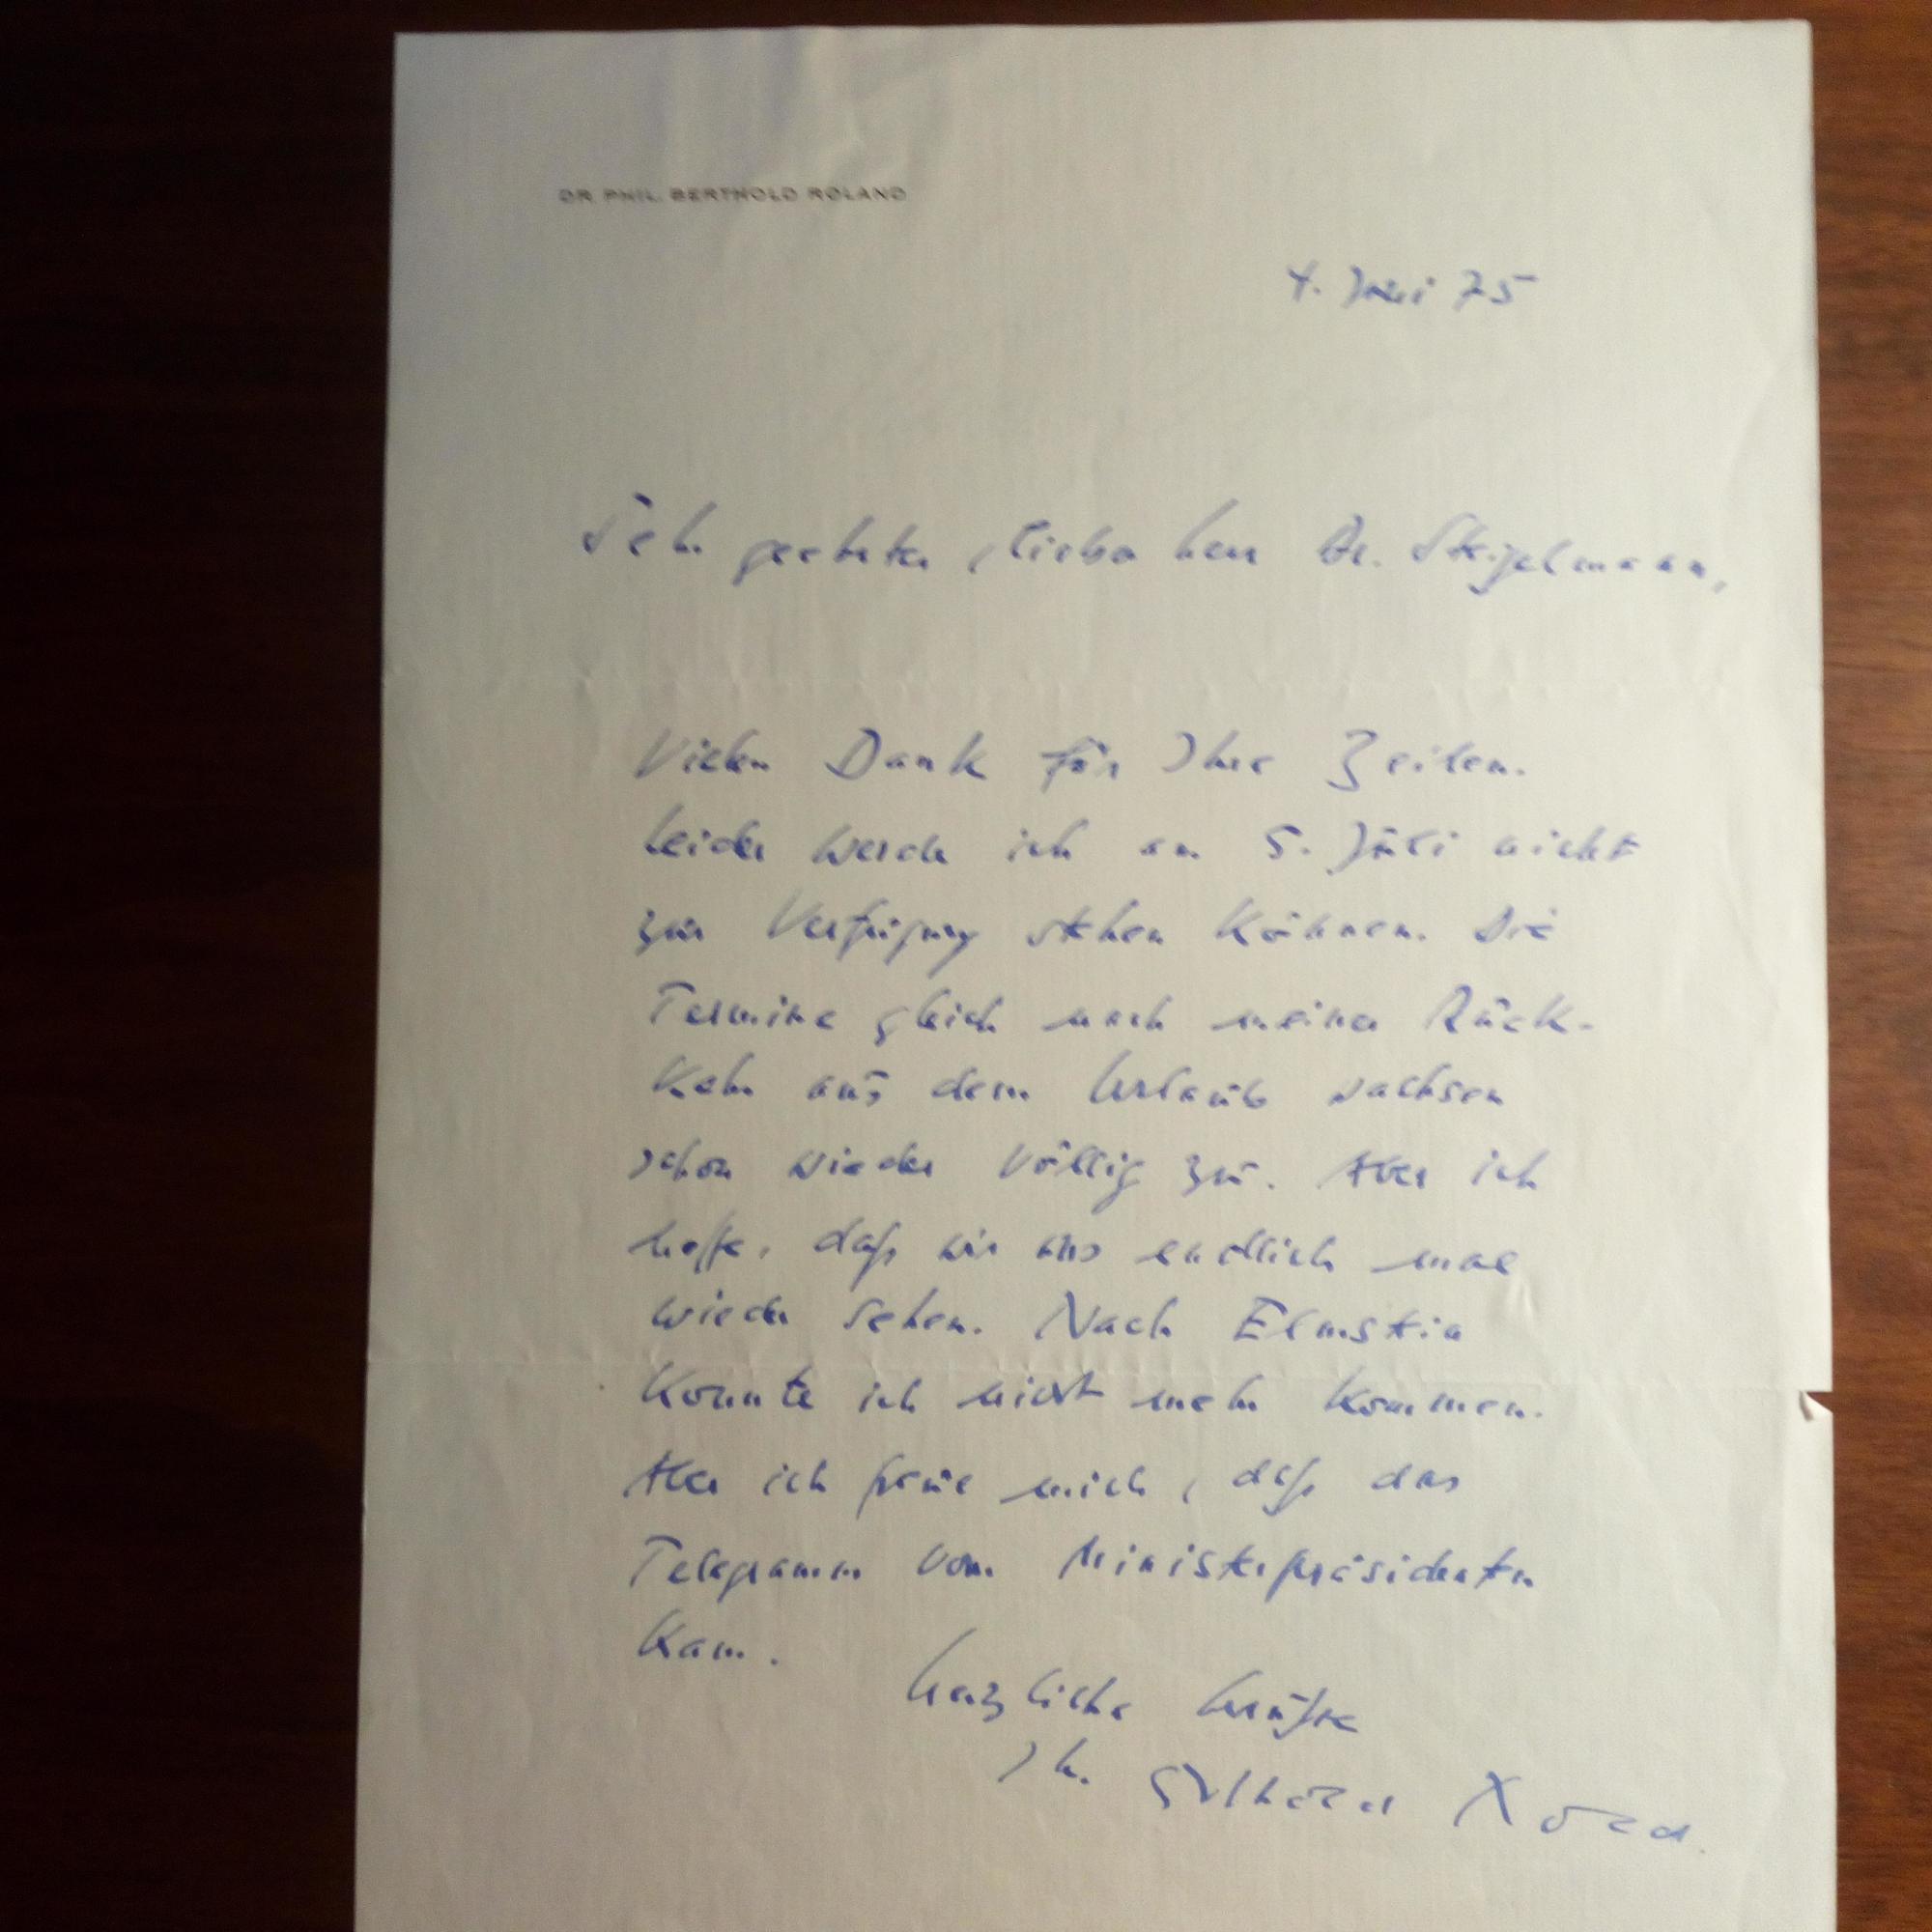 DR. PHIL. BERTHOLD ROLAND
4. Juni 75
Sehr geehrter, lieber Herr Dr. Steigelmann,
Vielen Dank für Ihre Zeilen.
Leider werde ich am 5. Juli nicht
zur Verfügung stehen können. Die
Termine gleich nach meiner Rück-
kehr aus dem Urlaub wachsen
schon wieder völlig zu. Aber ich
hoffe, daß wir uns endlich mal
wieder sehen. Nach Elmstein
konnte ich nicht mehr kommen.
Aber ich freue mich, daß das
Telegramm vom Ministerpräsidenten
kam.
Herzliche Grüße
Ihr Berthold Roland